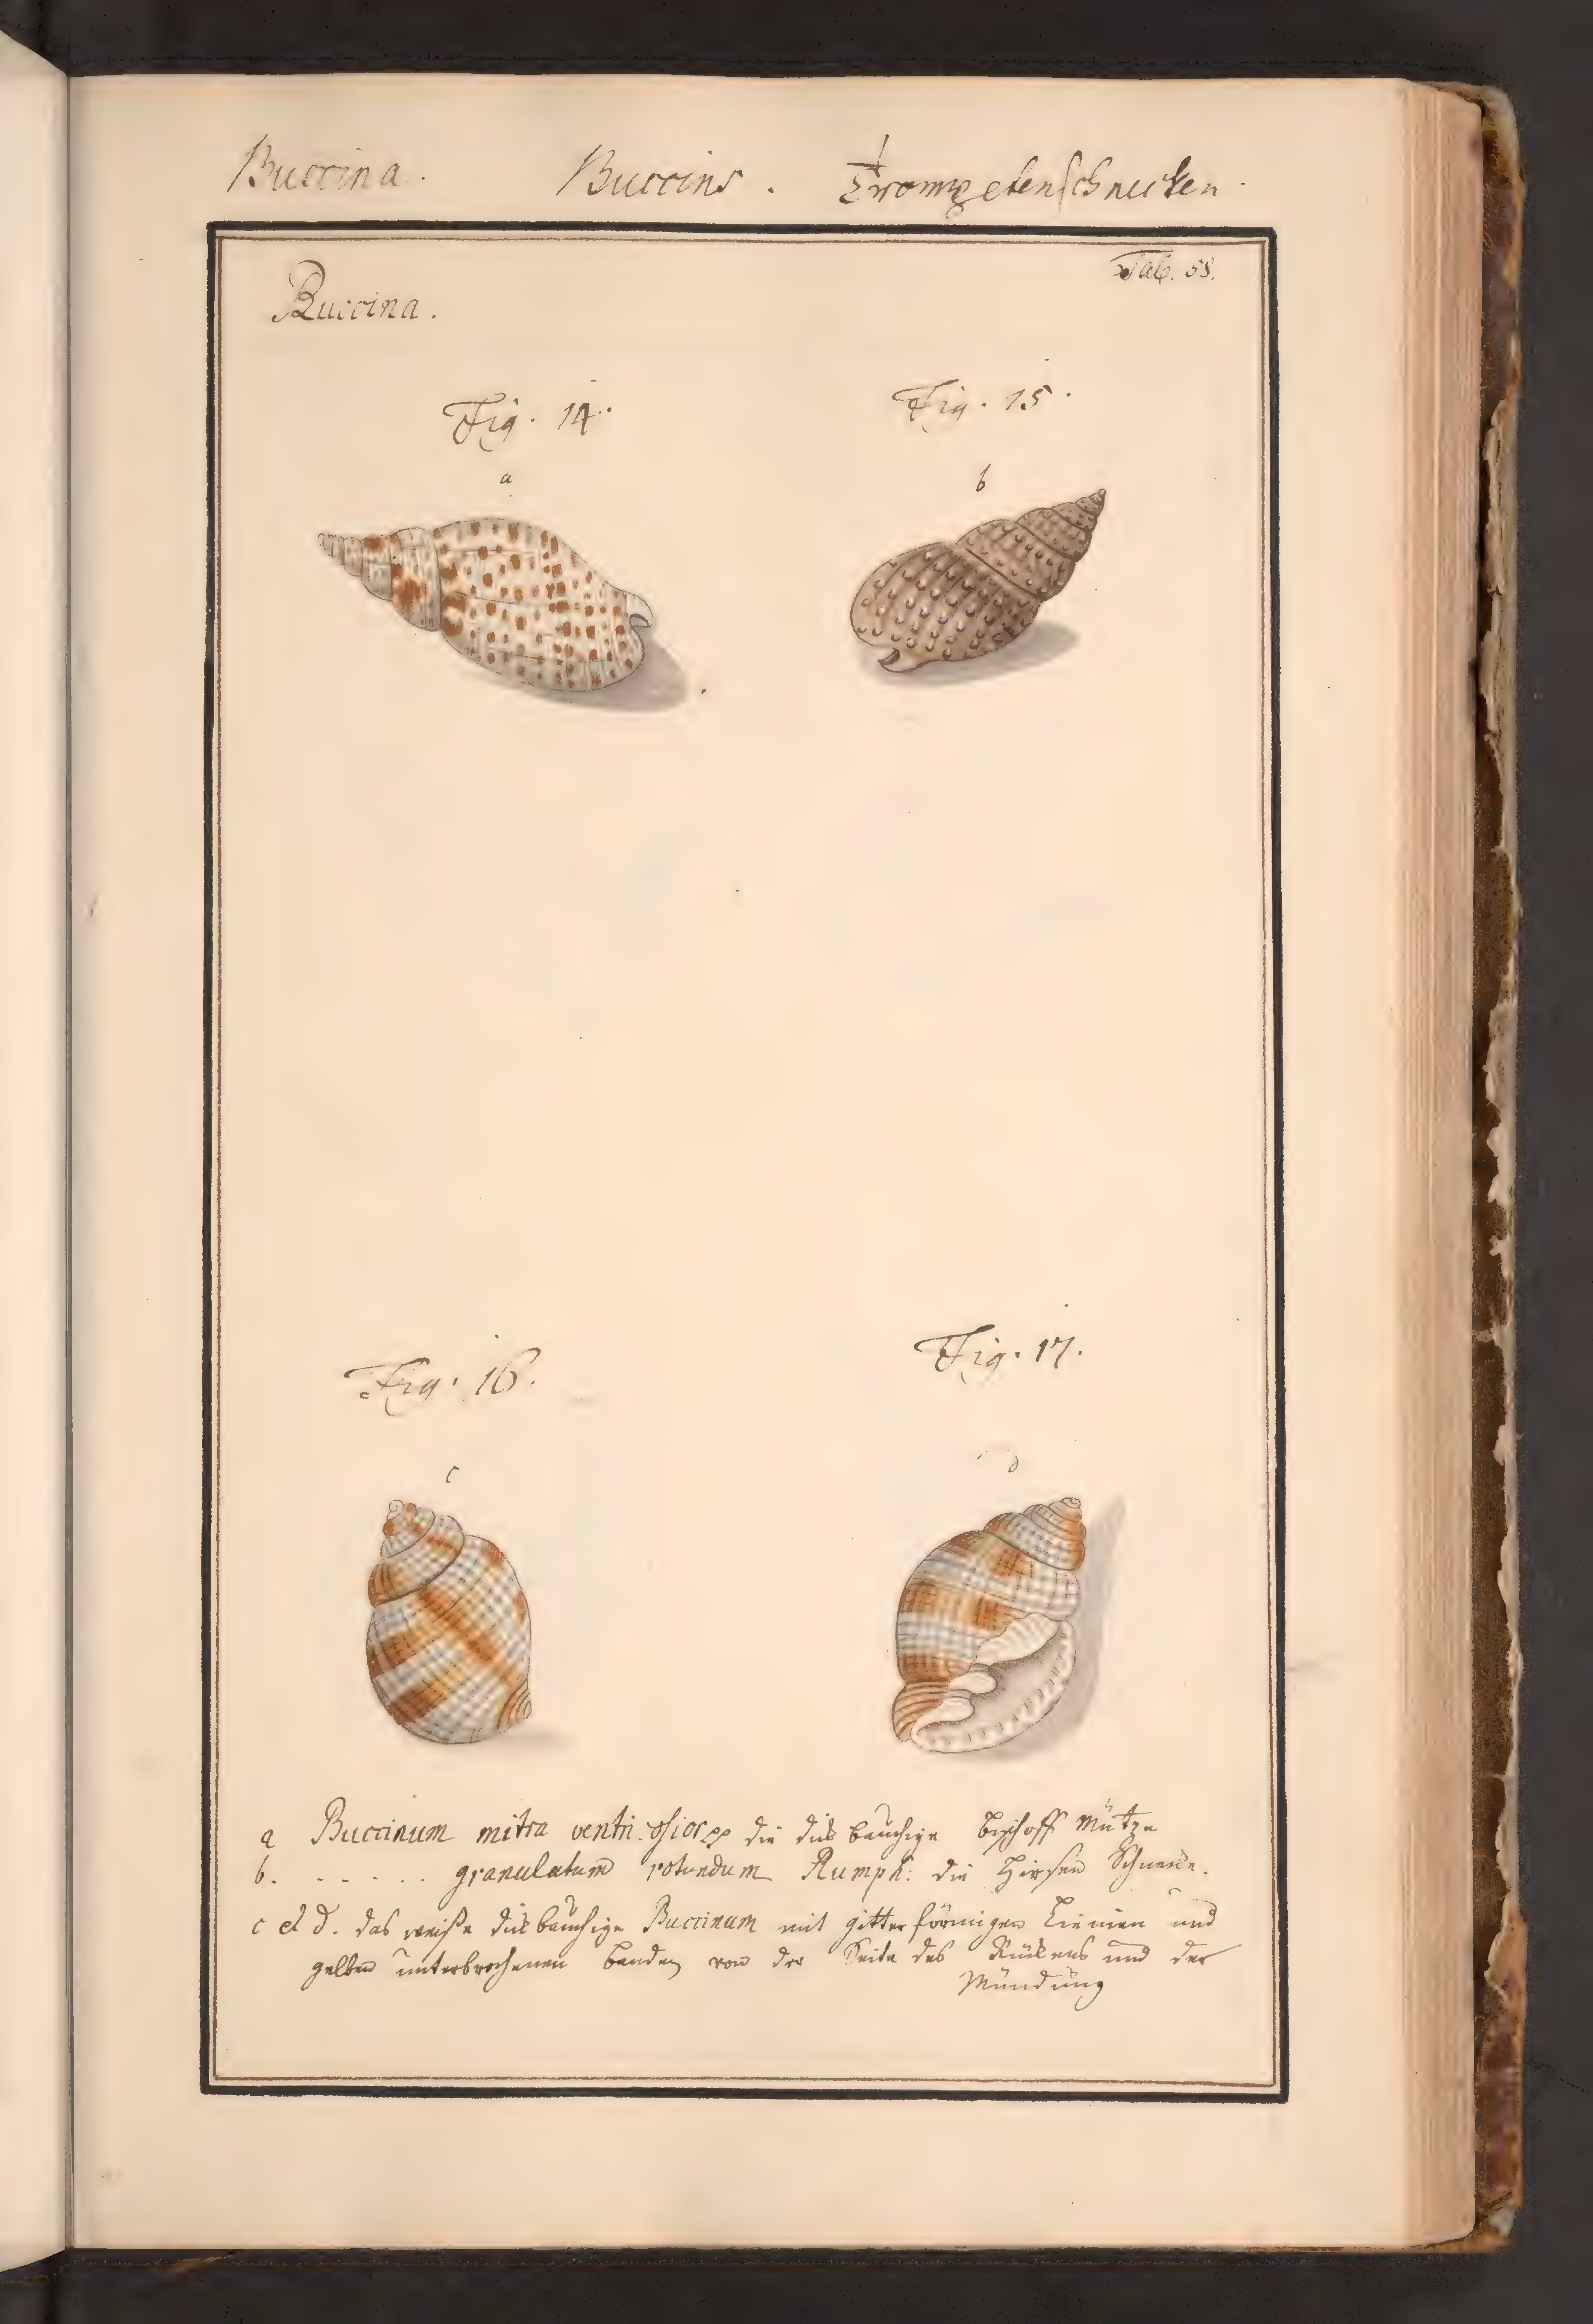 Buccina. Buccins. Trompetenschnecken.
Tab. 58.
Buccina.
Fig. 14.
Fig. 15.
a
b
Fig. 16.
Fig. 17.
c
d
a Buccinum mitra ventri: die dick bauchige Bischoff Mütze
b. . . . . . . granulatum rotundum Rumph: die Hirsen Schnecke.
c et d. das weiße dickbauchige Buccinum mit gitterförmigen Linien und
gelben unterbrochenen banden von der Seite des Rückens und der
Mündung